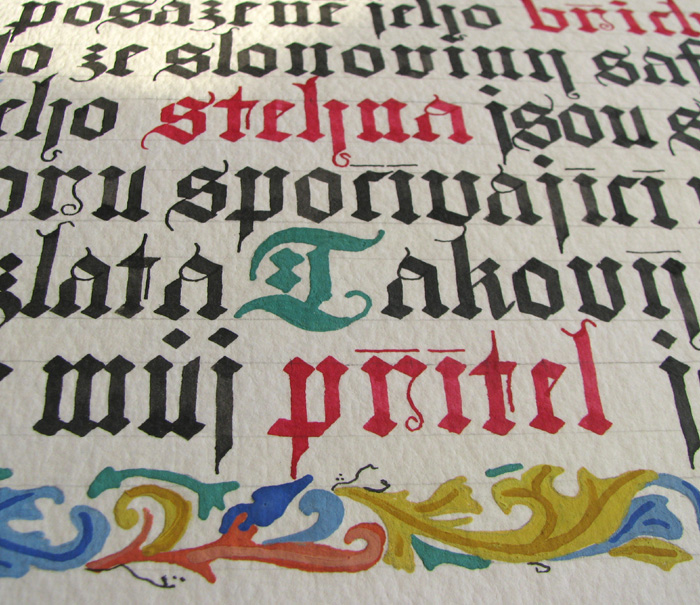 posázené jeho břich
o ze slonoviny saf
jeho stehna jsou s
oru spočívající
zlata Takový
můj přítel